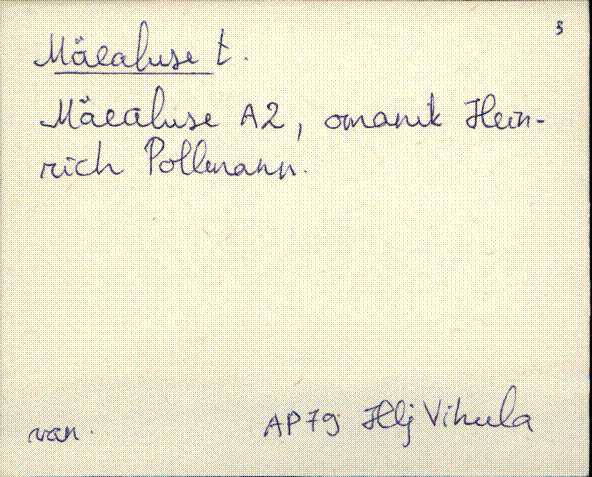 3
Mäealuse t.
Mäealuse A2, omanik Hein-
rich Pollmann.
van.
AP79 Hlj Vihula